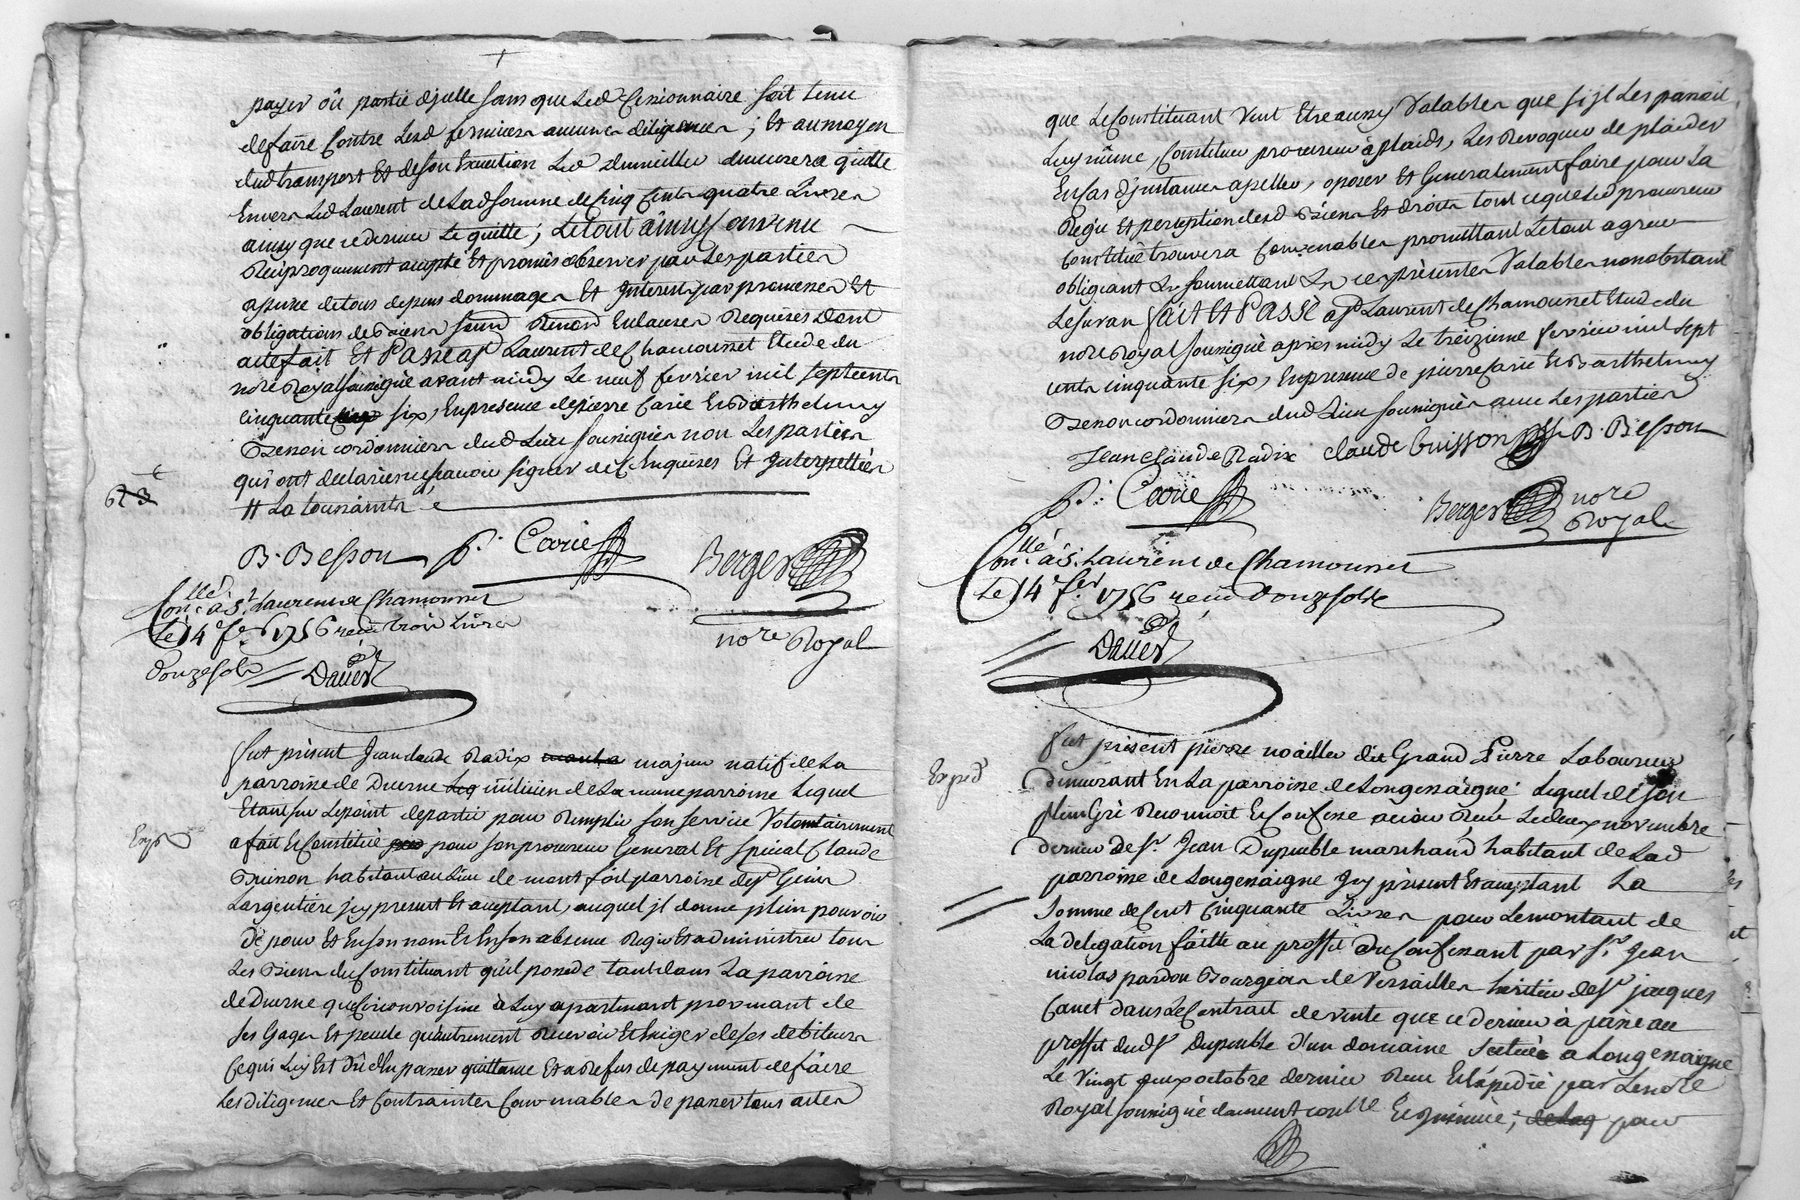 payer où partie d'jcelle sans que Led Cessionnaire soit tenu
de faire Contre Lesd fermiers aucunes diligences ; Et au moyen
dud transport Et de son Execution Led demeurera quitte
Envers Led Laurent de Lad somme de Cinq Cents quatre Livres
ainsy que ce dernier Le quitte ; Le tout âinsy Convenu
Réciproquement accepté Et promis observer par Les parties
a peine de tous depens dommages Et Interests par promesses Et
obligations de biens soumd Renond Et clauses Requises Dont
acte fait Et Passé a St Laurent de Chamousset Etude du
nore Royal soussigné avant midy Le neuf fevrier mil sept cents
Cinquante six, En presence de pierre Carie Et Barthelmy
Besson cordonniers dud Lieu soussignés non Les parties
qui ont declaré ne sçavoir signer de Ce Enquises Et Interpellées
H La toussaints
B. Besson p. Carie Berger
nore Royal
Conllé à St Laurent de Chamousset
Le 14e fer 1756 reçu trois Livres
Douze sols Dauer
fut présent Jean claude Radix majeur natif de La
parroisse de Duerne milicien de La meme parroisse Lequel
Etant sur Le point de partir pour Remplir son service Volontairement
Expd
a fait Et Constitué pour son procureur General Et spécial Claude
Buisson habitant au Lieu de mont foit parroisse de St Genis
Largentiere jcy present Et acceptant, auquel jl donne plein pouvoir
De pour Et En son nom Et En son absence Regir Et administrer tous
Les Biens du Constituant qu'il possede tant dans La parroisse
de Duerne que Circonvoisine à Luy apartenant provenant de
ses Gages Et pecule qu'autrement Recevoir Et Exiger de ses debiteurs
Ce qui Luy Est Dû d'En passer quittance Et a Refus de payement de faire
Les diligences Et Contraintes Convenables De passer tous actes
que Le Constituant Veut Etre aussy Valables que si jl Les passoit
Luy même, Constituer procureur à plaids, Les Revoquer de plaider
En Cas d'jnstances apeller, oposer Et Generalement faire pour La
Regie Et perception desd Biens Et droits tout ce que Led procureur
Constitué trouvera Convenable promettant Le tout agreer
obligeant Les soumettant Les presentes Valables nonobstant
Le suran fait Et Passé a St Laurent de Chamousset Etude du
nore Royal soussigné après midy Le treizieme fevrier mil sept
cents cinquante six, En presence de pierre Carie Et Barthelmy
Besson cordonniers dud Lieu soussignés avec Les parties
Jean claude Radix claude buisson B. Besson
p. Carie Berger nore
Royal
Conllé à St Laurent de Chamousset
Le 14e fer 1756 reçu Douze sols
Dauer
Expd
fut présent pierre noailler dit Grand Pierre Laboureur
demeurant En La parroisse de Longessaigne Lequel de son
plein Gré Reconnoit Et Confesse avoir Reçu Le deux novembre
dernier de Sr Jean Dupeuble marchand habitant de Lad
parroisse de Longessaigne Jcy présent Et acceptant La
somme de Cent Cinquante Livres pour Le montant de
La delegation faitte au proffit du Confessant par Sr Jean
nicolas pardon Bourgeois de Versailles heritier de Sr jacques
Canet dans Le Contrait de vente que ce dernier à passé au
proffit dud Sr Dupeuble d'un domaine scitué a Longessaigne
Le Vingt deux octobre dernier Reçu Et Expedié par Le nore
Royal soussigné duement contlle Et Insinué, pour